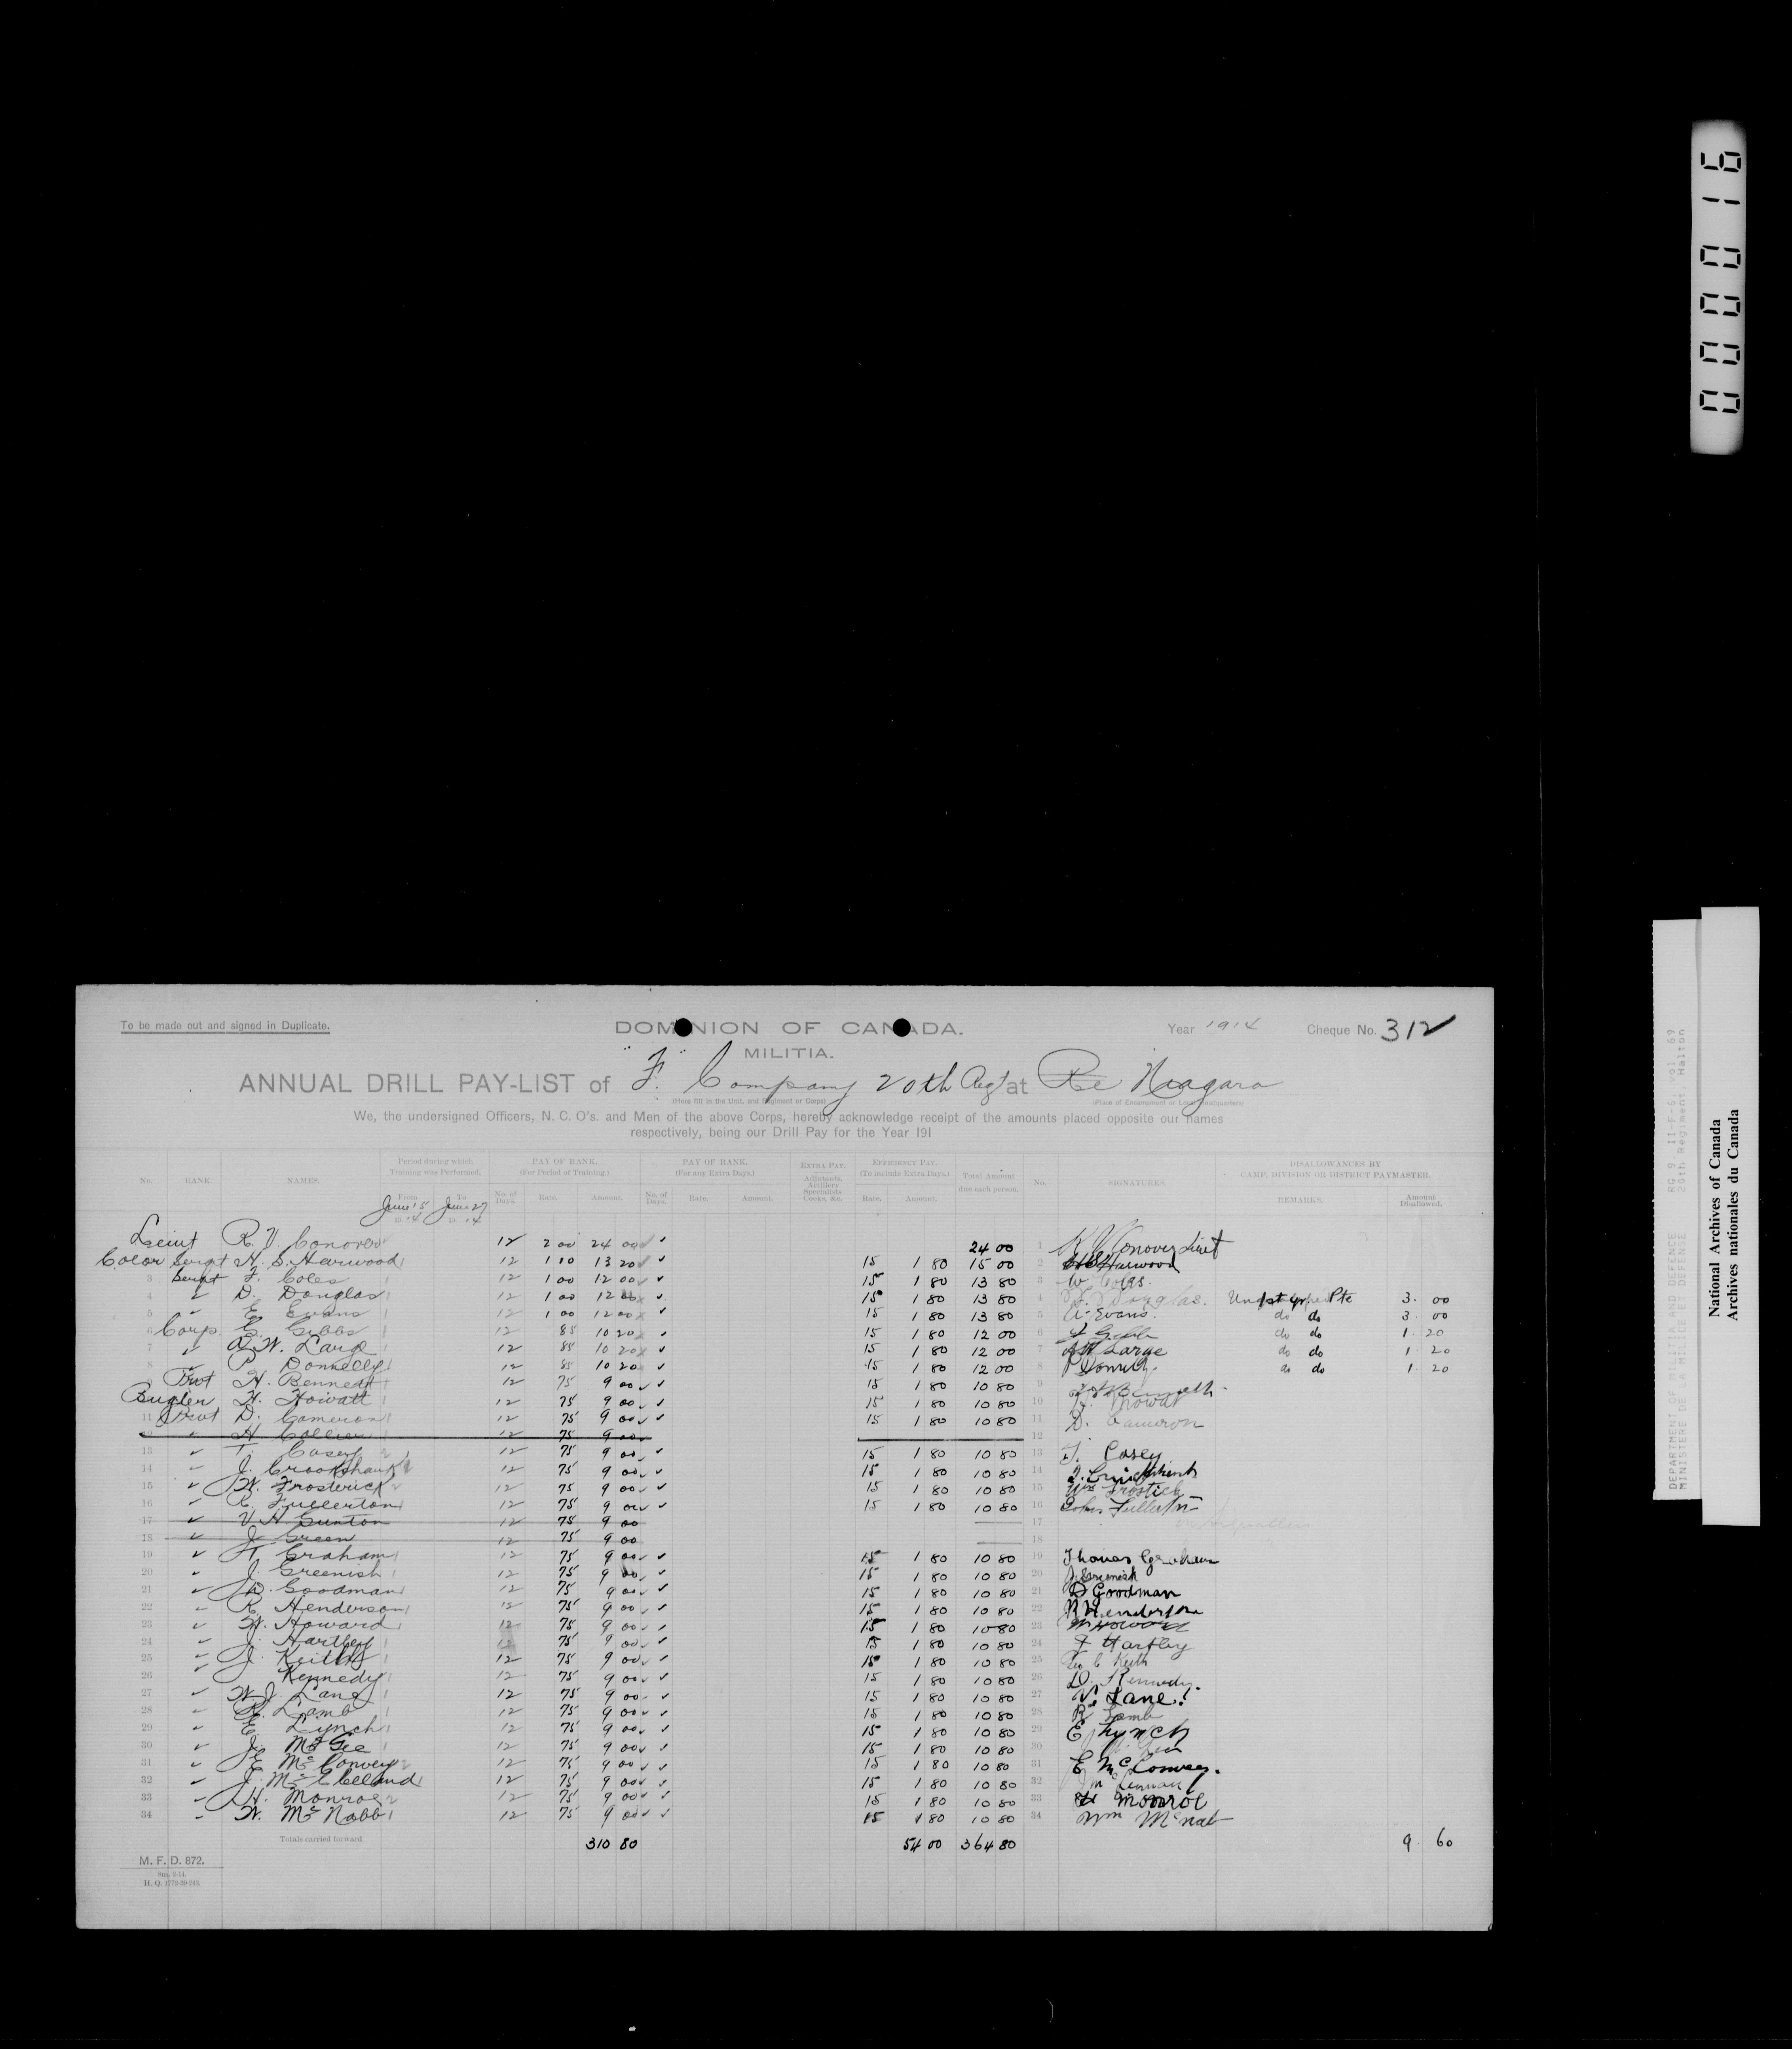 000016
To be made out and signed in Duplicate.
DOMINION OF CANADA.
Year 1914
Cheque No. 312
MILITIA.
ANNUAL DRILL PAY-LIST of "F" Company 20th Regt at Niagara
(Here fill in the Unit, and Regiment or Corps)
(Place of Encampment or Local Headquarters)
We, the undersigned Officers, N. C. O's. and Men of the above Corps, hereby acknowledge receipt of the amounts placed opposite our names
respectively, being our Drill Pay for the Year 191
No. RANK. NAMES. Period during which Training was Performed. From June 15 1914 To June 27 1914 PAY OF RANK. (For Period of Training.) No. of Days. Rate. Amount. PAY OF RANK. (For any Extra Days.) No. of Days. Rate. Amount. EXTRA PAY. Adjutants, Artillery Specialists Cooks, &c. EFFICIENCY PAY. (To include Extra Days.) Rate. Amount. Total Amount due each person. No. SIGNATURES. DISALLOWANCES BY CAMP, DIVISION OR DISTRICT PAYMASTER. REMARKS. Amount Disallowed.
Leiut R. V. Conover 12 2 00 24 00 24 00 1 R V Conover Lieut
Color Sergt H. S. Harwood 12 1 10 13 20 15 1 80 15 00 2 H S Harwood
3 Sergt F. Coles 12 1 00 12 00 15 1 80 13 80 3 W. Coles.
4 " D. Douglas 12 1 00 12 00 15 1 80 13 80 4 Douglas. Pte 3. 00
5 " E. Evans 12 1 00 12 00 15 1 80 13 80 5 A. Evans. do do 3. 00
6 Corp. C. Gibbs 12 85 10 20 15 1 80 12 00 6 Gibbs do do 1. 20
7 " W. Large 12 85 10 20 15 1 80 12 00 7 Large do do 1. 20
8 " P. Donnelly 12 85 10 20 15 1 80 12 00 8 do do 1 20
9 Prvt H. Bennett 12 75 9 00 15 1 80 10 80 9 Bennett
Bugler H. Howatt 12 75 9 00 15 1 80 10 80 10 Howat
11 Prvt D. Cameron 12 75 9 00 15 1 80 10 80 11 D. Cameron
12 " H. Collier 12 75 9 00 12
13 " T. Casey 12 75 9 00 15 1 80 10 80 13 T. Casey
14 " J. Crookshank 12 75 9 00 15 1 80 10 80 14
15 " W. Frosterick 12 75 9 00 15 1 80 10 80 15 Wm Frostick
16 " Fullerton 12 75 9 00 15 1 80 10 80 16 John Fullerton
17 " V. H. Gunton 12 75 9 00 17
18 " J. Green 12 75 9 00 18
19 " T. Graham 12 75 9 00 15 1 80 10 80 19 Thomas Graham
20 " J. Greenish 12 75 9 00 15 1 80 10 80 20 J. Greenish
21 " D. Goodman 12 75 9 00 15 1 80 10 80 21 D Goodman
22 " R. Henderson 12 75 9 00 15 1 80 10 80 22 R Henderson
23 " W. Howard 12 75 9 00 15 1 80 10 80 23 W Howard
24 " J. Hartley 12 75 9 00 15 1 80 10 80 24 J Hartley
25 " J. Keith 12 75 9 00 15 1 80 10 80 25 Keith
26 " Kennedy 12 75 9 00 15 1 80 10 80 26 D. Kennedy.
27 " W. J. Lane 12 75 9 00 15 1 80 10 80 27 W. Lane.
28 " R. Lamb 12 75 9 00 15 1 80 10 80 28 R Lamb
29 " E. Lynch 12 75 9 00 15 1 80 10 80 29 E Lynch
30 " J. McGee 12 75 9 00 15 1 80 10 80 30
31 " E. McConvey 12 75 9 00 15 1 80 10 80 31 E McConvey.
32 " J. McClelland 12 75 9 00 15 1 80 10 80 32
33 " H. Monroe 12 75 9 00 15 1 80 10 80 33 H Monroe
34 " W. McNabb 12 75 9 00 15 1 80 10 80 34 Wm McNab
Totals carried forward 310 80 54 00 364 80 9. 60
M. F. D. 872.
H. Q. 1772-39-243.
National Archives of Canada
Archives nationales du Canada
DEPARTMENT OF MILITIA AND DEFENCE RG 9, II-F-6, vol. 69
MINISTERE DE LA MILICE ET DEFENSE 20th Regiment, Halton